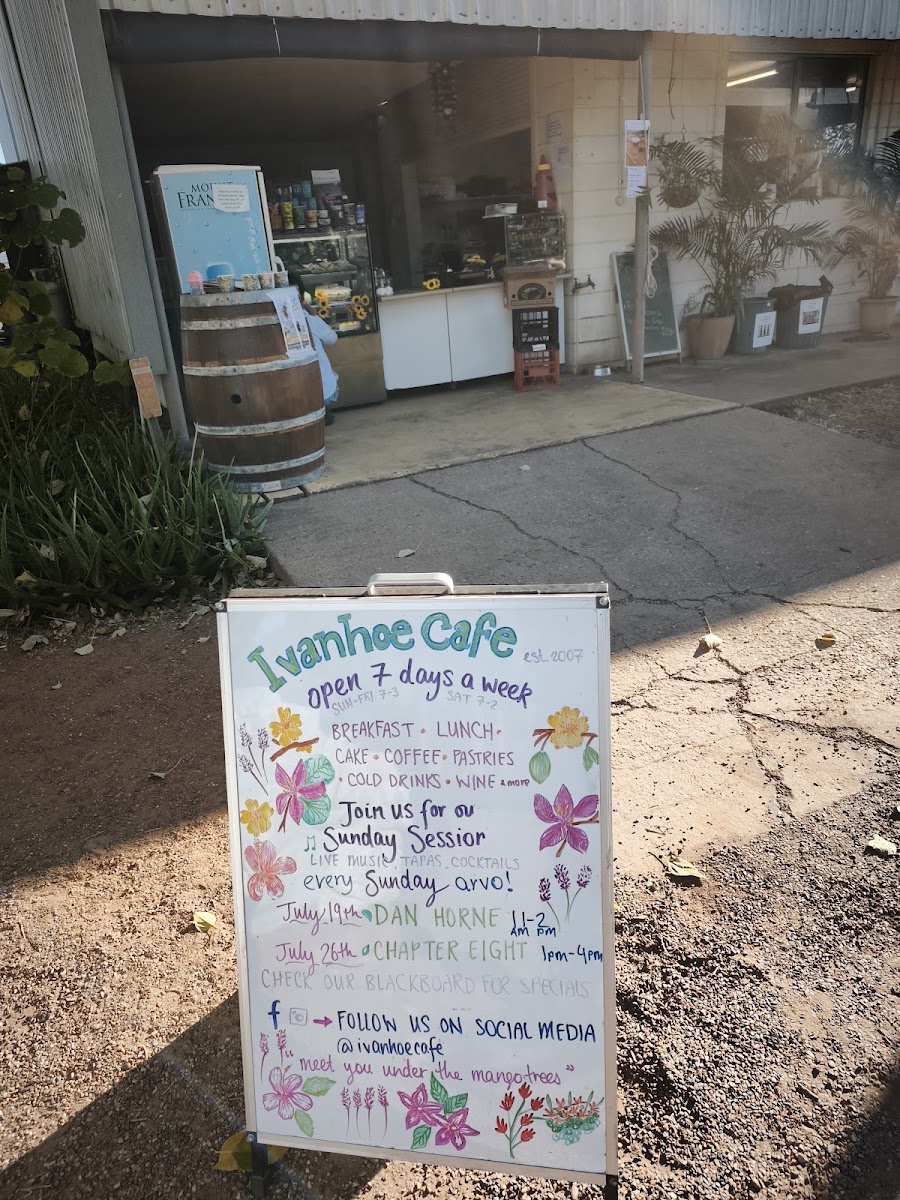 MOUNT
FRAN
Ivanhoe Cafe
est. 2007
open 7 days a week
SUN-FRI 7-3 SAT 7-2
BREAKFAST • LUNCH •
CAKE • COFFEE • PASTRIES
• COLD DRINKS • WINE & more
Join us for ou
Sunday Sessior
LIVE MUSIC, TAPAS, COCKTAILS
every Sunday arvo!
July 19th DAN HORNE 11-2
am pm
July 26th CHAPTER EIGHT 1pm-4pm
CHECK OUR BLACKBOARD FOR SPECIALS
f → FOLLOW US ON SOCIAL MEDIA
@ivanhoecafe
"meet you under the mango trees"